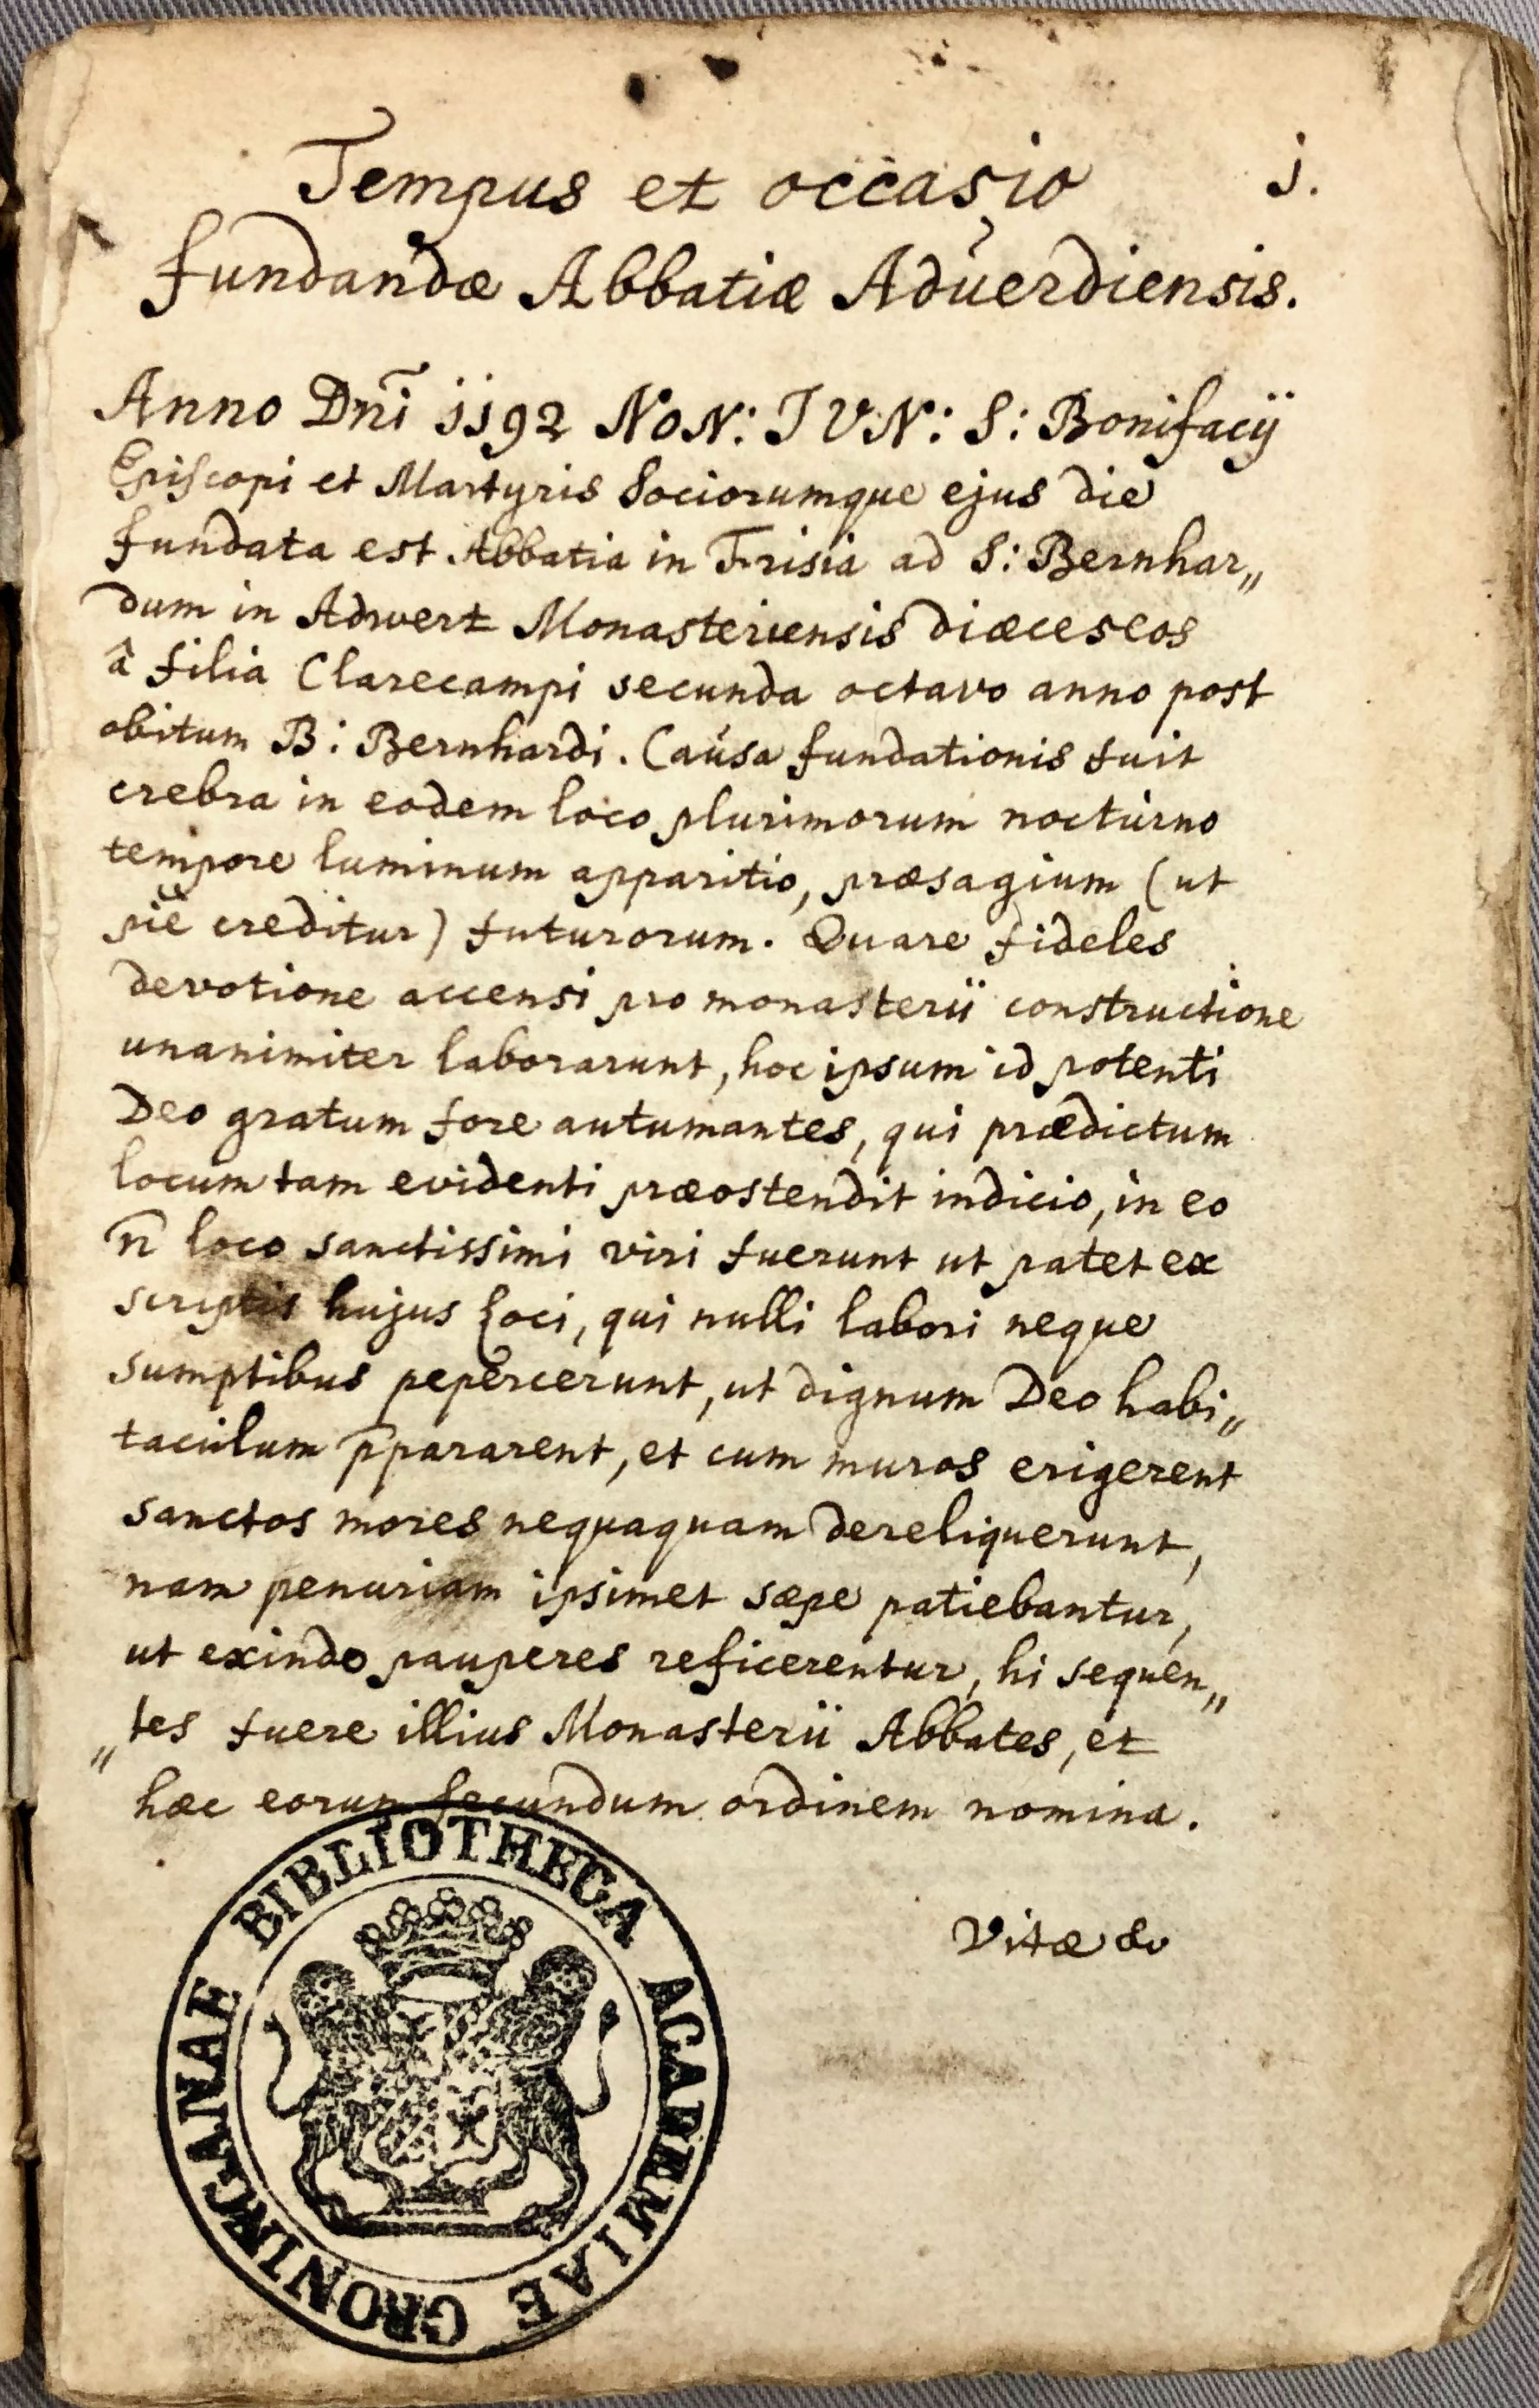 Tempus et occasio
j.
fundandæ Abbatiæ Aduerdiensis.
Anno Dnī jj92 NON: IVN: S: Bonifacÿ
Episcopi et Martyris Sociorumque ejus die
fundata est Abbatia in Frisia ad S: Bernhar„
dum in Adwert Monasteriensis diæceseos
â filia Clarecampi secunda octavo anno post
obitum B: Bernhardi. Causa fundationis fuit
crebra in eodem loco plurimorum nocturno
tempore luminum apparitio, præsagium (ut
piè creditur) futurorum. Quare fideles
devotione accensi pro monasterii constructione
unanimiter laborarunt, hoc ipsum id potenti
Deo gratum fore autumantes, qui prædictum
locum tam evidenti præostendit indicio, in eo
n̄ loco sanctissimi viri fuerunt ut patet ex
scriptis hujus loci, qui nulli labori neque
sumptibus pepercerunt, ut dignum Deo habi„
taculum p̄pararent, et cum muros erigerent
sanctos mores nequaquam dereliquerunt,
nam penuriam ipsimet sæpe patiebantur,
ut exinde pauperes reficerentur, hi sequen„
„tes fuere illius Monasterii Abbates, et
hæc eorum secundum ordinem nomina.
Vitæ &
BIBLIOTHECA ACADEMIAE GRONINGANAE